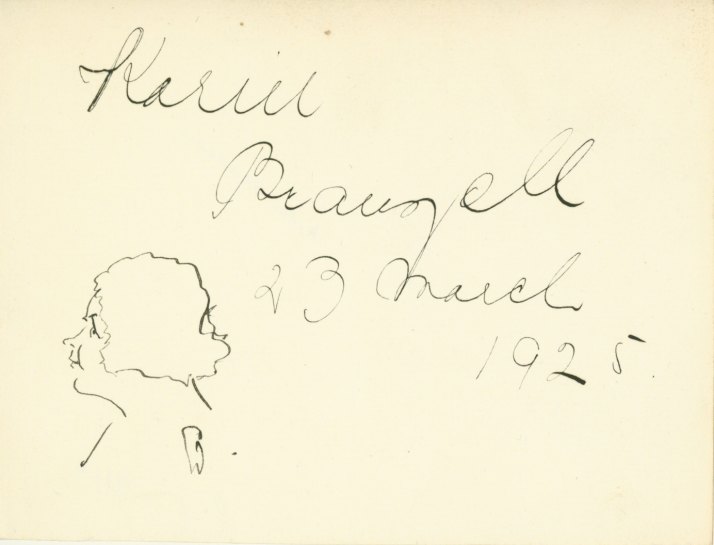 Karin
Branzell
23 March
1925.